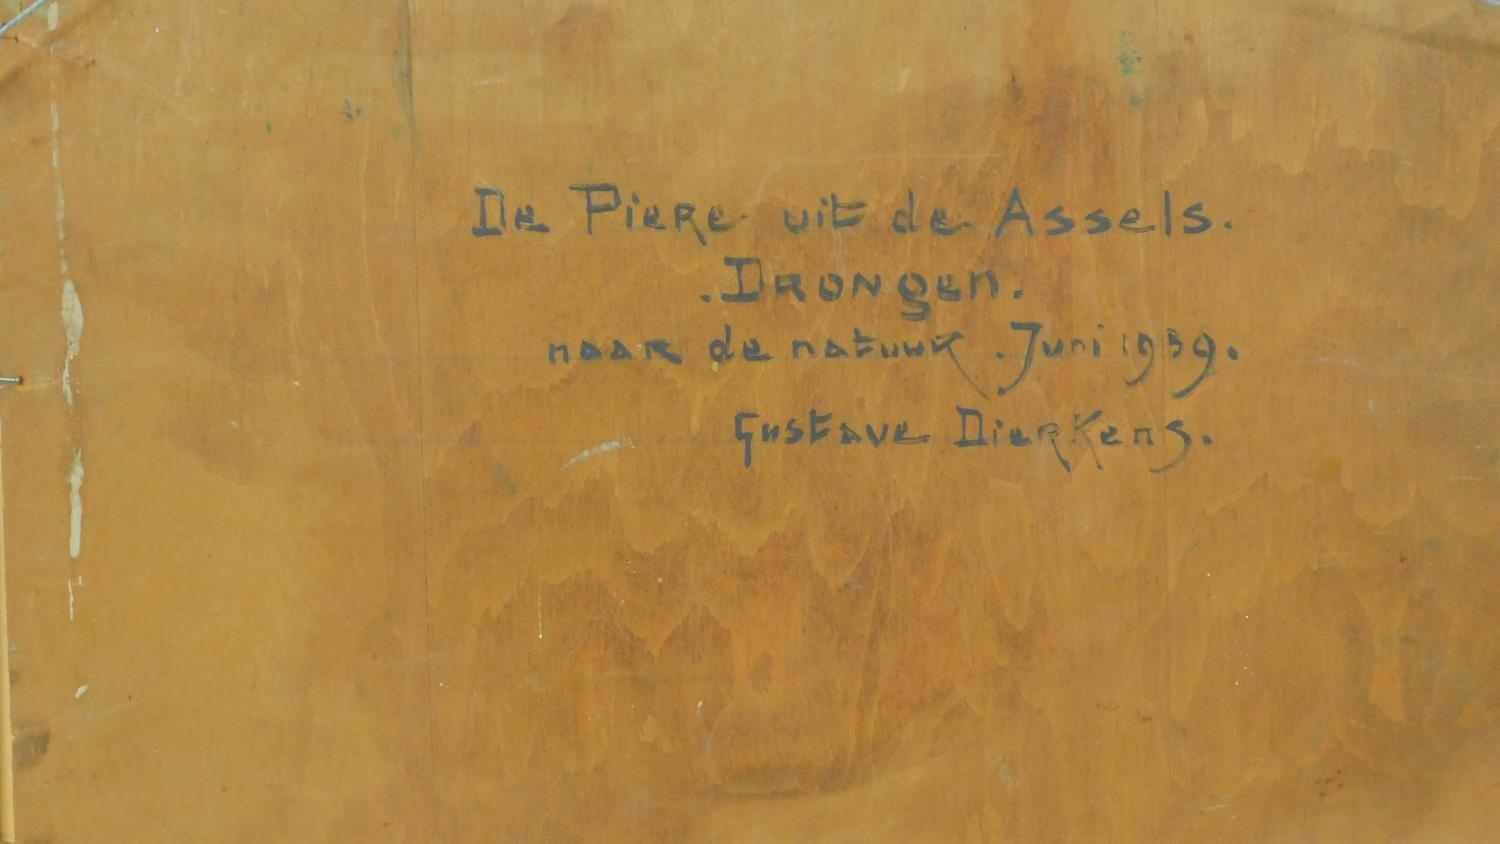 De Piere uit de Assels.
.Drongen.
naar de natuur. Juni 1939.
Gustave Dierkens.